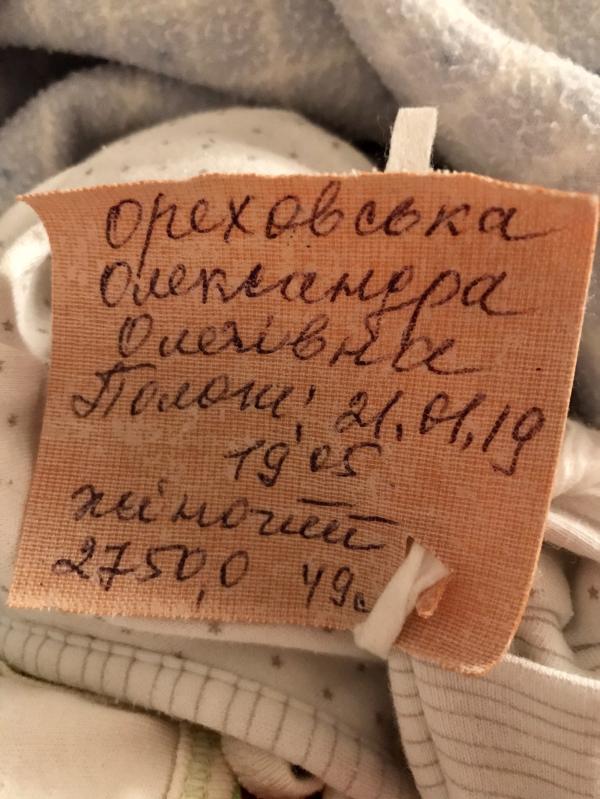 Ореховська
Олександра
Олегівна
Полож; 21.01.19
19 05
жіночий
2750,0 49